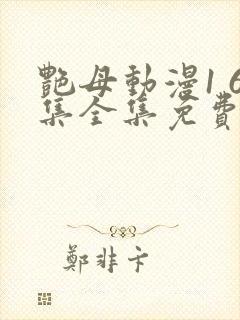 艷母動漫1 6
集全集免費
鄭非卞